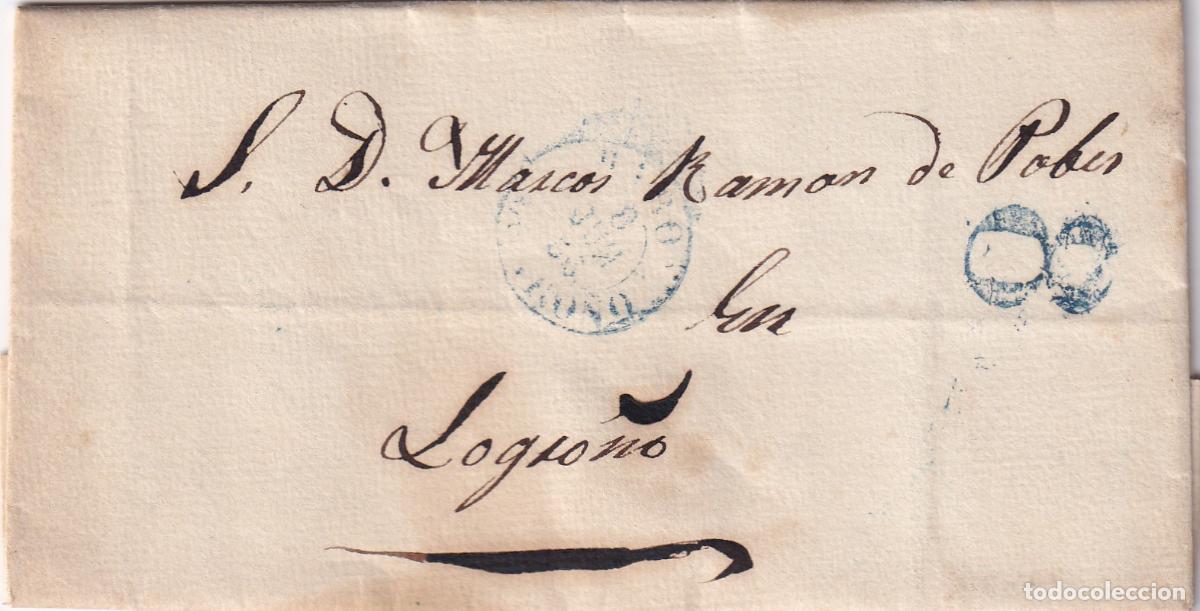 S. D. Marcos Ramon de Pobes
8
En
Logroño
todocoleccion